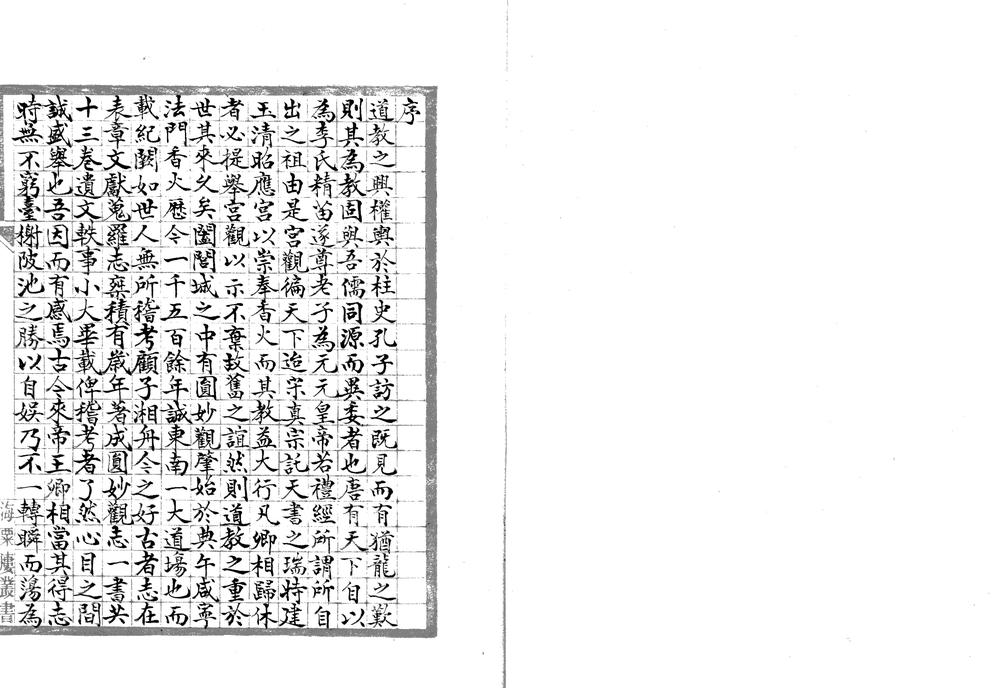 序
道教之興權輿於柱史孔子訪之既見而有猶龍之歎
則其為教固與吾儒同源而異委者也唐有天下自以
為李氏精苗遂尊老子為元元皇帝若禮經所謂所自
出之祖由是宮觀徧天下迨宋真宗託天書之瑞特建
玉清昭應宮以崇奉香火而其教益大行凡卿相歸休
者必提舉宮觀以示不棄故舊之誼然則道教之重於
世其來久矣闔閭城之中有圓妙觀肇始於典午咸寧
法門香火歷今一千五百餘年誠東南一大道場也而
載紀闕如世人無所稽考顧子湘舟今之好古者志在
表章文獻蒐羅志乘積有歲年著成圓妙觀志一書共
十三卷遺文軼事小大畢載俾稽考者了然心目之間
誠盛舉也吾因而有感焉古今來帝王卿相當其得志
時無不窮臺榭陂池之勝以自娛乃不一轉瞬而蕩為
海粟廔叢書